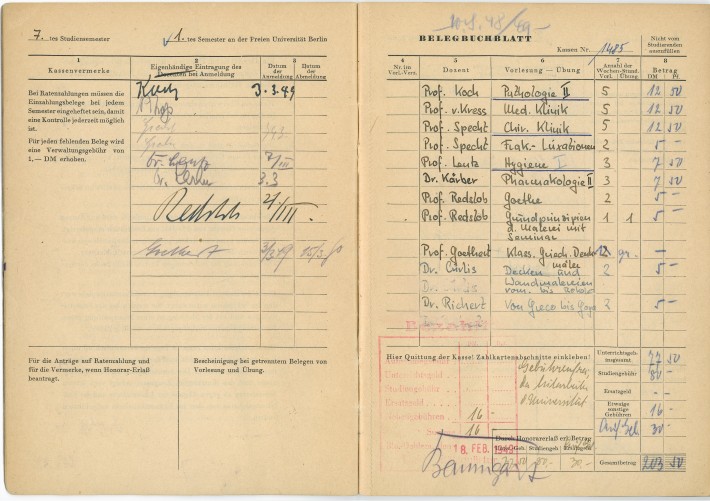 7. tes Studiensemester
1. tes Semester an der Freien Universität Berlin
1
2
3
Kassenvermerke
Eigenhändige Eintragung des
Dozenten bei Anmeldung
Datum der Anmeldung
Datum der Abmeldung
Bei Ratenzahlungen müssen die
Einzahlungsbelege bei jedem
Semester eingeheftet sein, damit
eine Kontrolle jederzeit möglich
ist.
Für jeden fehlenden Beleg wird
eine Verwaltungsgebühr von
1,— DM erhoben.
Koch 3.3.49
3.3
Redslob
Für die Anträge auf Ratenzahlung und
für die Vermerke, wenn Honorar-Erlaß
beantragt.
Bescheinigung bei getrenntem Belegen von
Vorlesung und Übung.
48/49
BELEGBUCHBLATT
Kassen Nr. 1485
Nicht vom
Studierenden
auszufüllen
4
5
6
7
8
Nr. im
Vorl.-Verz.
Dozent
Vorlesung — Übung
Anzahl der
Wochen-Stund.
Vorl. Übung
Betrag
DM Pf.
Prof. Koch Pathologie II 5 12 50
Prof. v. Kress Med. Klinik 5 12 50
Prof. Specht Chir. Klinik 5 12 50
Prof. Specht Frak.- Luxationen 2 5 —
Prof. Lentz Hygiene I 3 7 50
Dr. Kärber Pharmakologie II 3 7 50
Prof. Redslob Goethe 2 5 —
Prof. Redslob Grundprinzipien 1 1 5 —
d. Malerei mit
Seminar
Prof. Goethert Klass. Griech. gr. —
Dr. Decken und 2 5 —
Wandmalereien
vom. bis
Dr. Richert Von Greco bis Goya 2 5 —
Hier Quittung der Kasse! Zahlkartenabschnitte einkleben!
Unterrichtsgeld
Studiengebühr
Ersatzgeld
16 —
16
18. FEB. 1949
Gebührenfrei,
da Mitarbeiter
d. Universität
Unterrichtsgeb.
insgesamt 77 50
Studiengebühr 80 —
Ersatzgeld — —
Etwaige
sonstige
Gebühren 16 —
30 —
Durch Honorarerlaß erl. Betrag
Gesamtbetrag 203 50